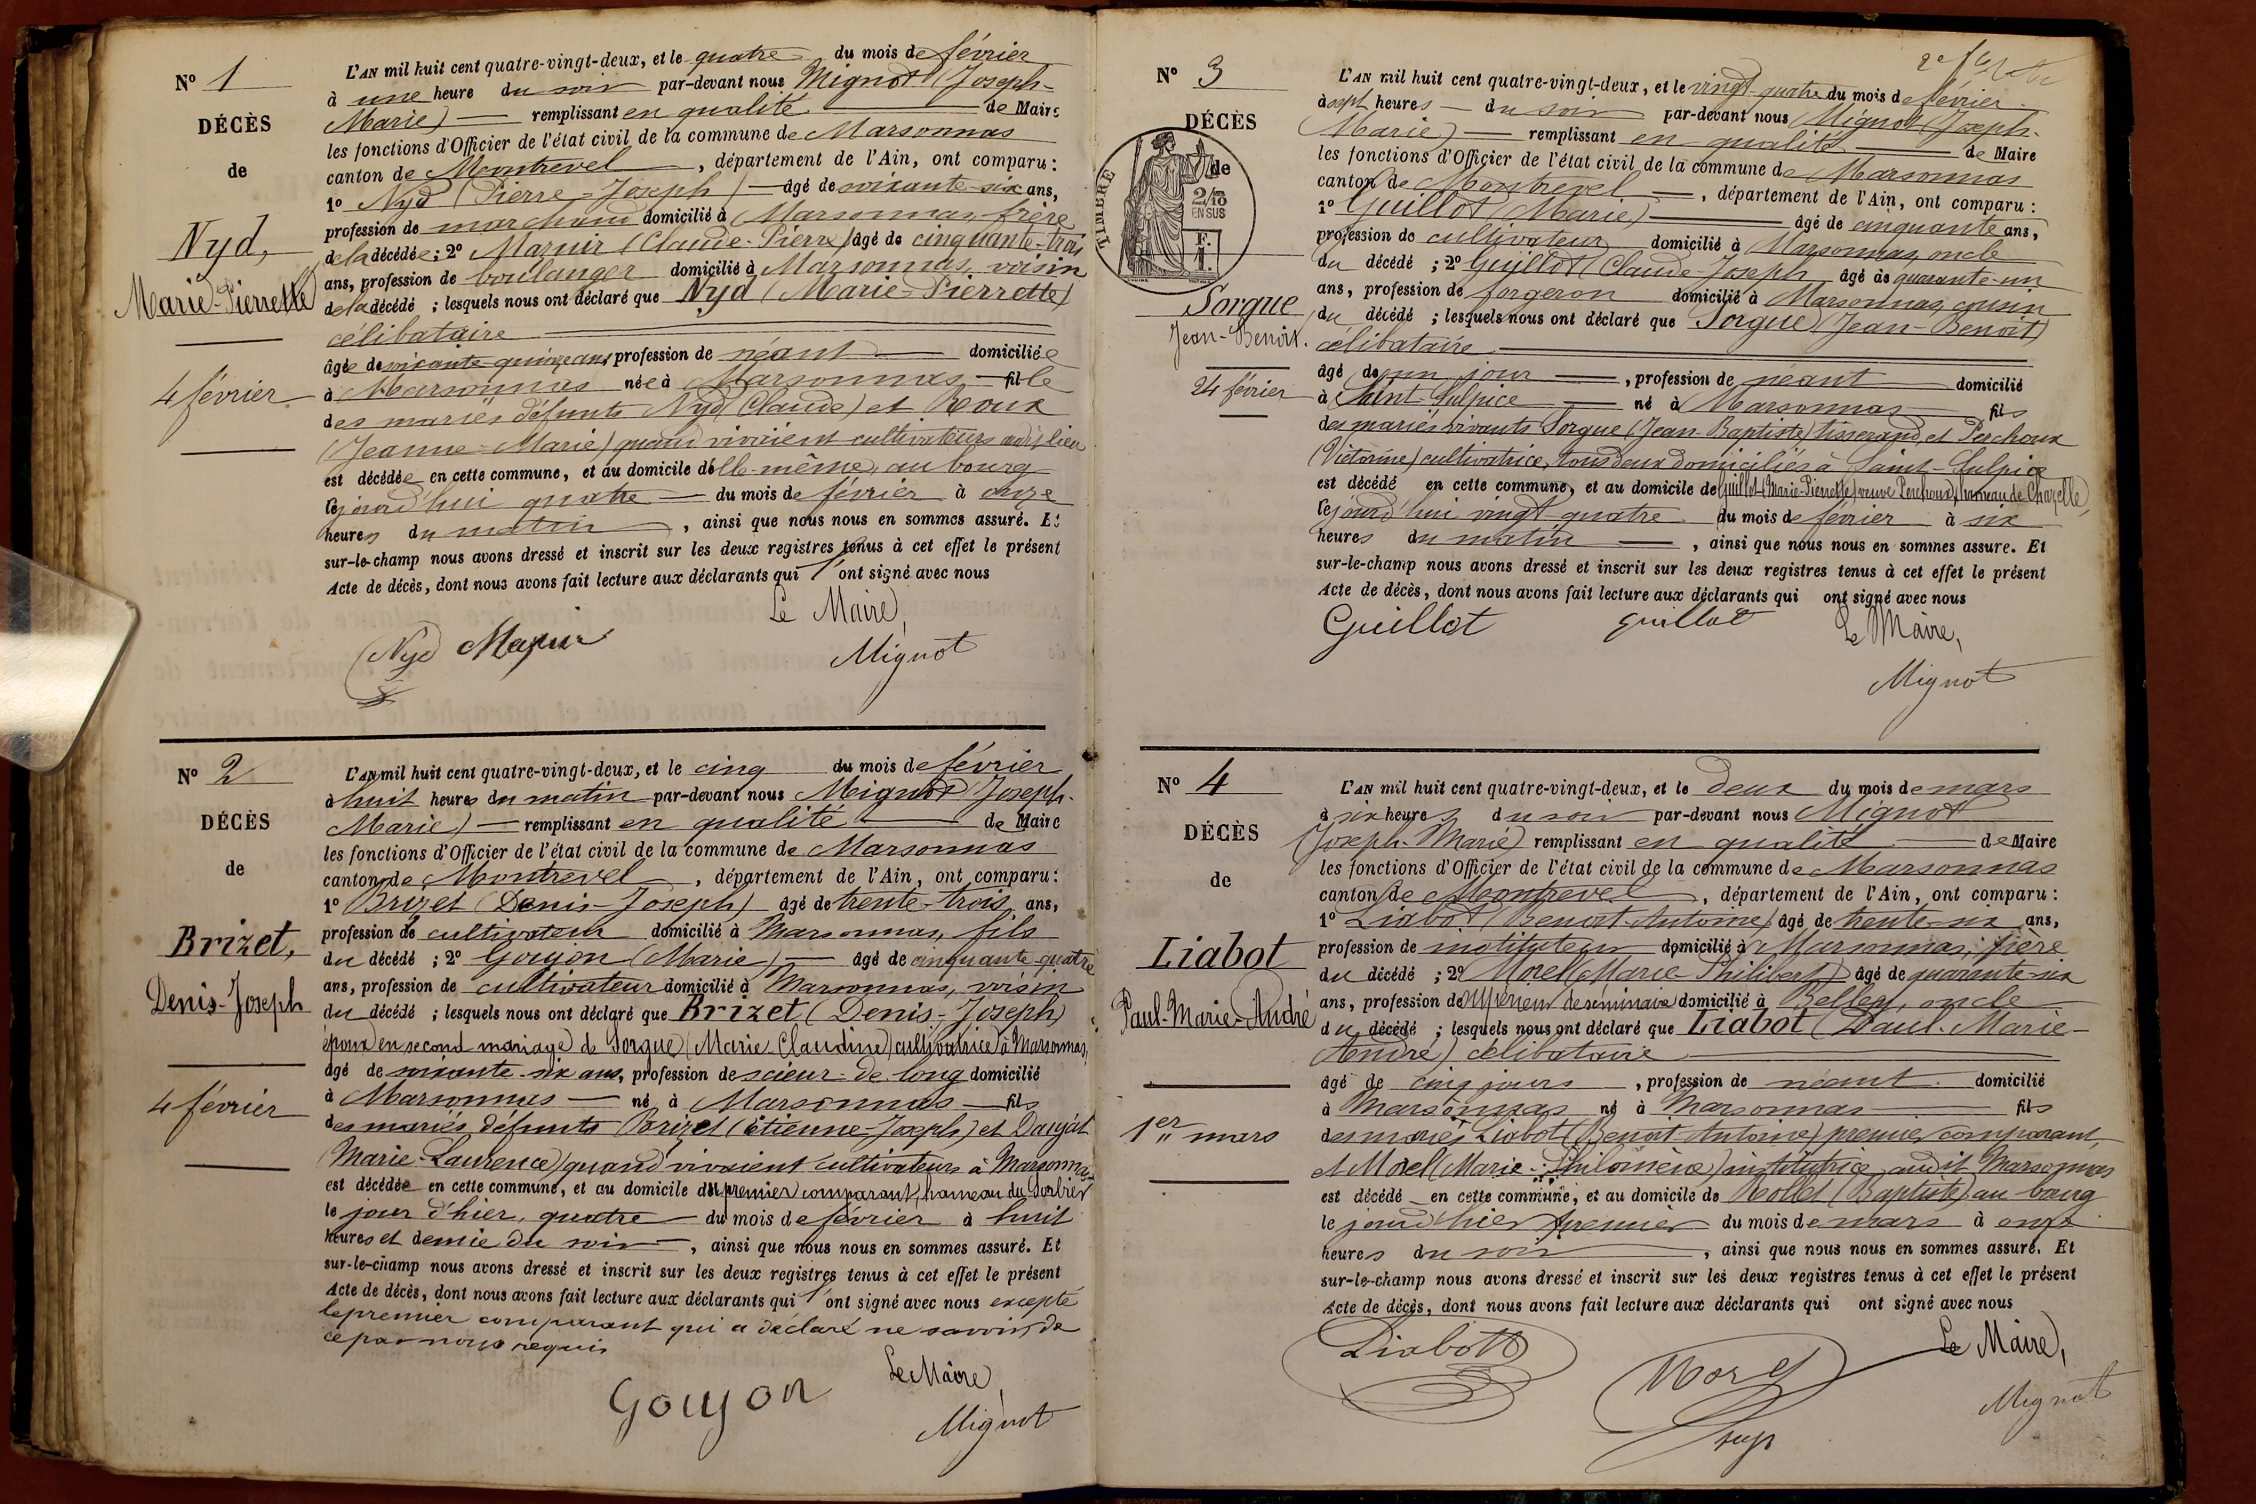 N° 1
DÉCÈS
de
Nyd,
Marie-Pierrette
4 février
L'AN mil huit cent quatre-vingt-deux, et le quatre du mois de février
à une heure du soir par-devant nous Mignot (Joseph-
Marie) remplissant en qualité de Maire
les fonctions d'Officier de l'état civil de la commune de Marsonnas
canton de Montrevel, département de l'Ain, ont comparu :
1° Nyd (Pierre-Joseph) âgé de soixante-six ans,
profession de marchand domicilié à Marsonnas, frère
de la décédée ; 2° Mazuir (Claude-Pierre) âgé de cinquante-trois
ans, profession de boulanger domicilié à Marsonnas, voisin
de la décédé ; lesquels nous ont déclaré que Nyd (Marie-Pierrette)
célibataire
âgée de soixante-quinze ans, profession de néant domiciliée
à Marsonnas née à Marsonnas fille
des mariés défunts Nyd (Claude) et Roux
(Jeanne-Marie) quand vivaient cultivateurs audit lieu
est décédée en cette commune, et au domicile d'elle-même, au bourg
cejourd'hui quatre du mois de février à onze
heures du matin, ainsi que nous nous en sommes assuré. Et
sur-le-champ nous avons dressé et inscrit sur les deux registres tenus à cet effet le présent
Acte de décès, dont nous avons fait lecture aux déclarants qui l'ont signé avec nous
Le Maire,
Nyd Mazuir Mignot
N° 2
DÉCÈS
de
Brizet,
Denis-Joseph
4 février
L'AN mil huit cent quatre-vingt-deux, et le cinq du mois de février
à huit heures du matin par-devant nous Mignot (Joseph-
Marie) remplissant en qualité de Maire
les fonctions d'Officier de l'état civil de la commune de Marsonnas
canton de Montrevel, département de l'Ain, ont comparu :
1° Brizet (Denis-Joseph) âgé de trente-trois ans,
profession de cultivateur domicilié à Marsonnas, fils
du décédé ; 2° Goujon (Marie) âgé de cinquante-quatre
ans, profession de cultivateur domicilié à Marsonnas, voisin
du décédé ; lesquels nous ont déclaré que Brizet (Denis-Joseph)
époux en second mariage de Sorgue (Marie-Claudine) cultivatrice à Marsonnas,
âgé de soixante-six ans, profession de scieur-de-long domicilié
à Marsonnas né à Marsonnas fils
des mariés défunts Brizet (Etienne-Joseph) et Daujat
(Marie-Laurence) quand vivaient cultivateurs à Marsonnas
est décédé en cette commune, et au domicile du premier comparant, hameau du Sorbier
le jour d'hier, quatre du mois de février à huit
heures et demie du soir, ainsi que nous nous en sommes assuré. Et
sur-le-champ nous avons dressé et inscrit sur les deux registres tenus à cet effet le présent
Acte de décès, dont nous avons fait lecture aux déclarants qui l'ont signé avec nous excepté
le premier comparant qui a déclaré ne savoir, de
ce par nous requis
Le Maire,
Goujon Mignot
N° 3
DÉCÈS
de
TIMBRE
2/10
EN SUS
F.
1.
Sorgue
Jean-Benoit.
24 février
L'AN mil huit cent quatre-vingt-deux, et le vingt-quatre du mois de février
à sept heures du soir par-devant nous Mignot (Joseph-
Marie) remplissant en qualité de Maire
les fonctions d'Officier de l'état civil de la commune de Marsonnas
canton de Montrevel, département de l'Ain, ont comparu :
1° Guillot (Marie) âgé de cinquante ans,
profession de cultivateur domicilié à Marsonnas, oncle
du décédé ; 2° Guillot (Claude-Joseph âgé de quarante-un
ans, profession de forgeron domicilié à Marsonnas, cousin
du décédé ; lesquels nous ont déclaré que Sorgue (Jean-Benoit)
célibataire
âgé de un jour, profession de néant domicilié
à Saint-Sulpice né à Marsonnas fils
des mariés vivants Sorgue (Jean-Baptiste) tisserand, et Perchoux
(Victorine) cultivatrice, tous deux domiciliés à Saint-Sulpice
est décédé en cette commune, et au domicile de Guillot (Marie-Pierrette) veuve Perchoux, hameau de Chazelle,
cejourd'hui vingt-quatre du mois de février à six
heures du matin, ainsi que nous nous en sommes assuré. Et
sur-le-champ nous avons dressé et inscrit sur les deux registres tenus à cet effet le présent
Acte de décès, dont nous avons fait lecture aux déclarants qui ont signé avec nous
Guillot guillot Le Maire,
Mignot
N° 4
DÉCÈS
de
Liabot
Paul-Marie-André
1er mars
L'AN mil huit cent quatre-vingt-deux, et le deux du mois de mars
à six heures du soir par-devant nous Mignot
(Joseph-Marie) remplissant en qualité de Maire
les fonctions d'Officier de l'état civil de la commune de Marsonnas
canton de Montrevel, département de l'Ain, ont comparu :
1° Liabot (Benoit-Antoine) âgé de trente-six ans,
profession de instituteur domicilié à Marsonnas, père
du décédé ; 2° Morel (Marie-Philibert) âgé de quarante-six
ans, profession de supérieur de séminaire domicilié à Belley, oncle
du décédé ; lesquels nous ont déclaré que Liabot (Paul-Marie-
André) célibataire
âgé de cinq jours, profession de néant domicilié
à Marsonnas né à Marsonnas fils
des mariés Liabot (Benoit-Antoine) premier comparant,
et Morel (Marie-Philomène) institutrice audit Marsonnas
est décédé en cette commune, et au domicile de Rollet (Baptiste) au bourg
le jour d'hier premier du mois de mars à onze
heures du soir, ainsi que nous nous en sommes assuré. Et
sur-le-champ nous avons dressé et inscrit sur les deux registres tenus à cet effet le présent
Acte de décès, dont nous avons fait lecture aux déclarants qui ont signé avec nous
Liabot Morel Le Maire,
Mignot